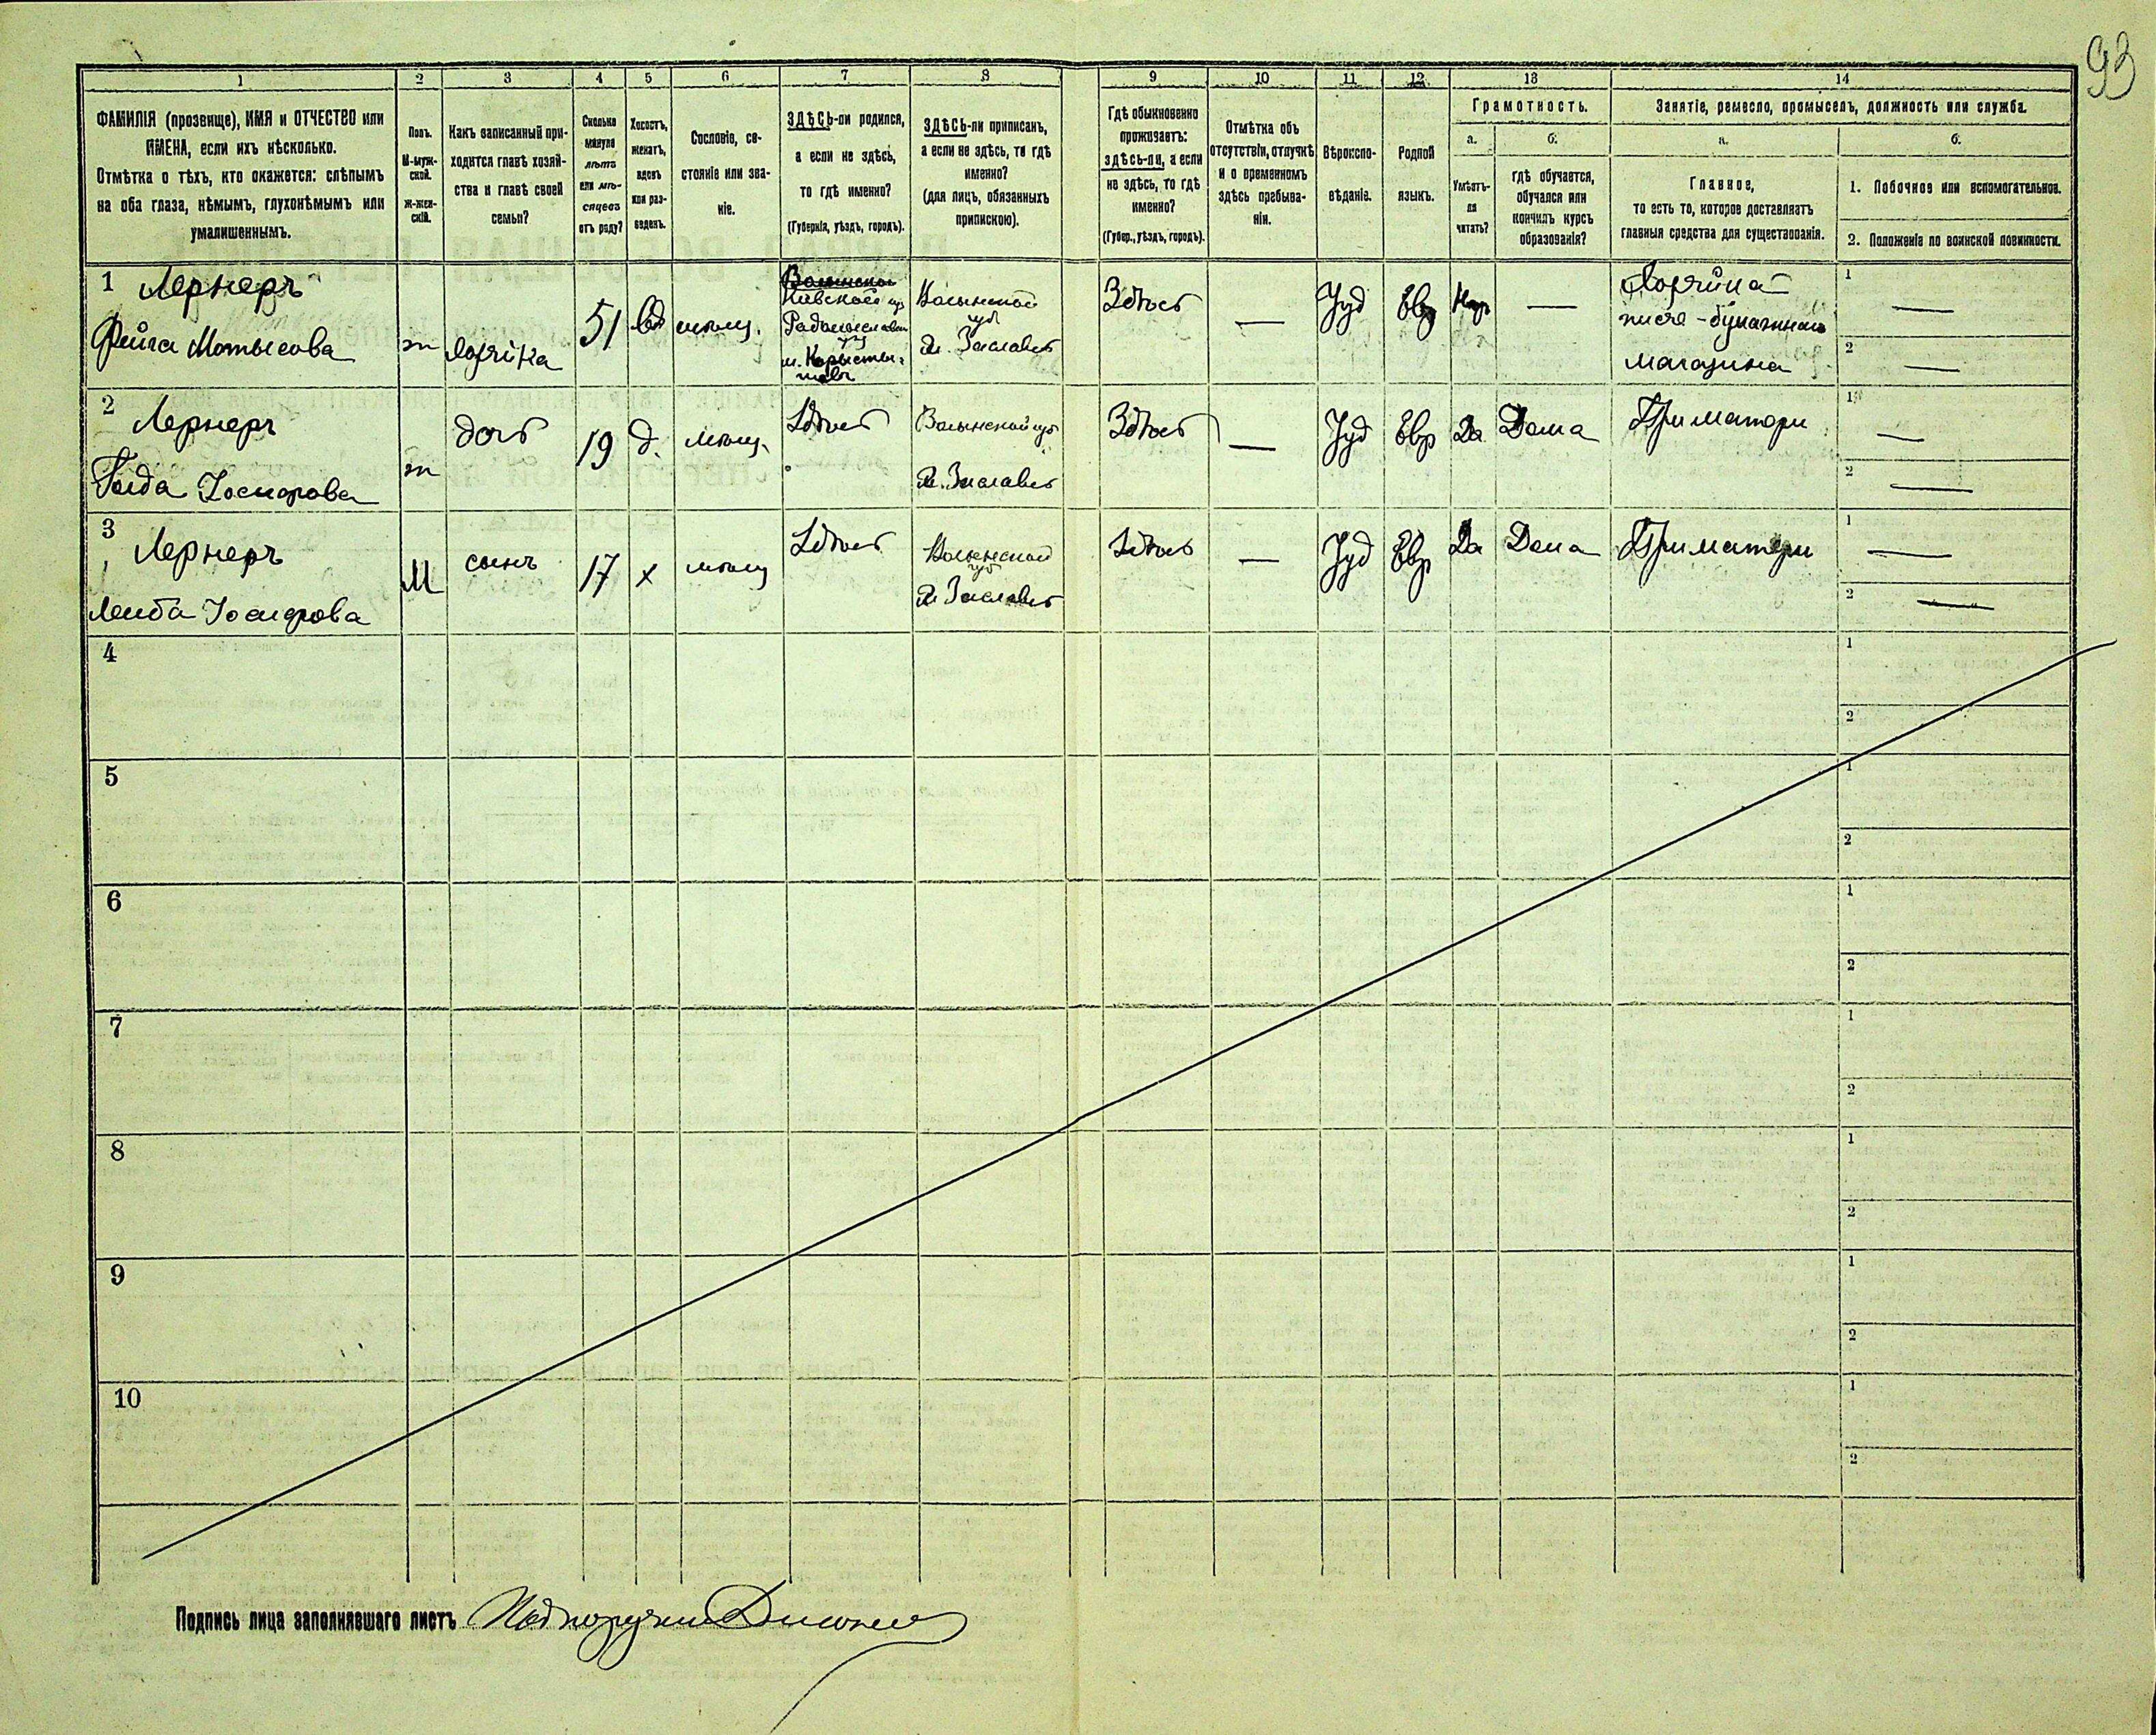 93
1 2 3 4 5 6 7 8 9 10 11 12 13 14
ФАМИЛІЯ (прозвище), ИМЯ и ОТЧЕСТВО или
ИМЕНА, если ихъ нѣсколько.
Отмѣтка о тѣхъ, кто окажется: слѣпымъ
на оба глаза, нѣмымъ, глухонѣмымъ или
умалишеннымъ.
Полъ.
М-муж-
ской.
Ж-жен-
скій.
Какъ записанный при-
ходится главѣ хозяй-
ства и главѣ своей
семьи?
Сколько
минуло
лѣтъ
или мѣ-
сяцевъ
отъ роду?
Холостъ,
женатъ,
вдовъ
или раз-
веденъ.
Сословіе, со-
стояніе или зва-
ніе.
ЗДѢСЬ-ли родился,
а если не здѣсь,
то гдѣ именно?
(Губернія, уѣздъ, городъ).
ЗДѢСЬ-ли приписанъ,
а если не здѣсь, то гдѣ
именно?
(для лицъ, обязанныхъ
припискою).
Гдѣ обыкновенно
проживаетъ:
здѣсь-ли, а если
не здѣсь, то гдѣ
именно?
(Губер., уѣздъ, городъ).
Отмѣтка объ
отсутствіи, отлучкѣ
и о временномъ
здѣсь пребыва-
ніи.
Вѣроиспо-
вѣданіе.
Родной
языкъ.
Грамотность.
а.
Умѣетъ-
ли
читать?
б.
гдѣ обучается,
обучался или
кончилъ курсъ
образованія?
Занятіе, ремесло, промыселъ, должность или служба.
а.
Главное,
то есть то, которое доставляетъ
главныя средства для существованія.
б.
1. Побочное или вспомогательное.
2. Положеніе по воинской повинности.
1 Лернеръ
Фейга Мотысова
ж
хозяйка
51
вд
мѣщ.
Волынской
Кіевской губ
Радомысльскаго
уѣз
Волынской
губ
г. Заславль
Здѣсь
—
Іуд
Евр
Нѣтъ
—
Хозяйка
писче-бумажнаго
магазина
1 —
2 —
2 Лернеръ
Голда Іосифова
ж
дочь
19
д.
мѣщ.
Здѣсь
Волынской губ
г. Заславль
Здѣсь
—
Іуд
Евр
Да
Дома
При матери
1 —
2 —
3 Лернеръ
Лейба Іосифова
М
сынъ
17
х
мѣщ
Здѣсь
Волынской
губ
г. Заславль
Здѣсь
—
Іуд
Евр
Да
Дома
При матери
1 —
2 —
4
1
2
5
1
2
6
1
2
7
1
2
8
1
2
9
1
2
10
1
2
Подпись лица заполнявшаго листъ